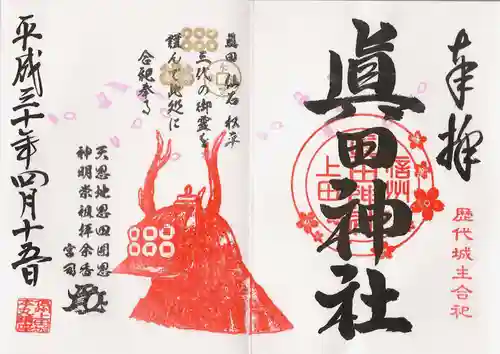 奉拝
眞田神社
信州
上田
歴代城主合祀
眞田 仙石 松平
三代の御霊を
謹んで此処に
合祀奉る
天恩地恩四囲恩
神明崇祖拝余香
宮司
平成三十年四月十五日